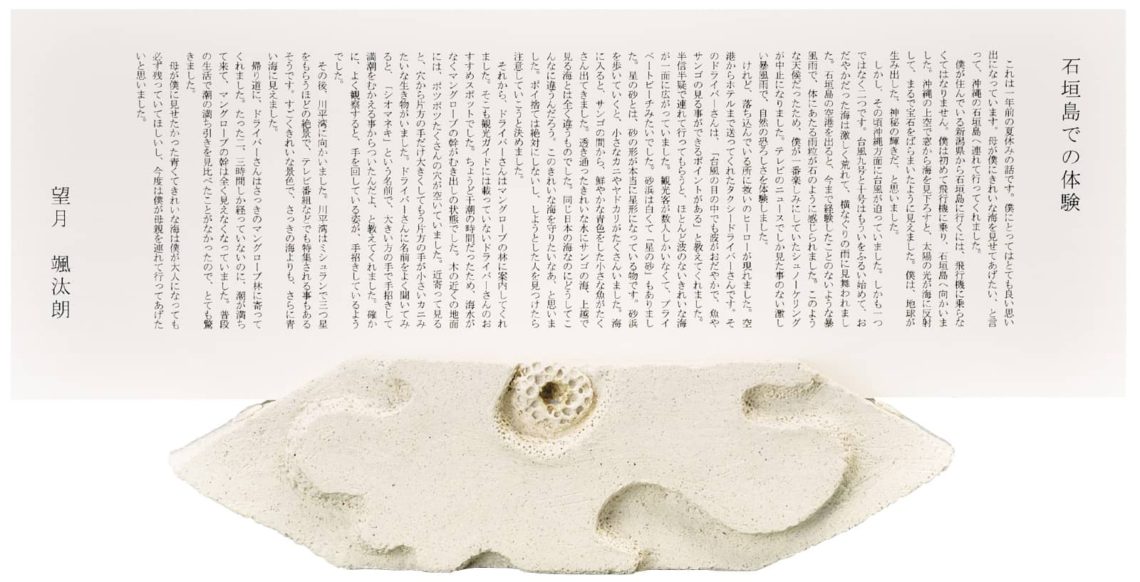 石垣島での体験
これは一年前の夏休みの話です。僕にとってはとても良い思い
出になっています。母が僕にきれいな海を見せてあげたい、と言
って、沖縄の石垣島へ連れて行ってくれました。
僕が住んでいる新潟県から石垣島に行くには、飛行機に乗らな
くてはなりません。僕は初めて飛行機に乗り、石垣島へ向かいま
した。沖縄の上空で窓から海を見下ろすと、太陽の光が海に反射
して、まるで宝石をばらまいたように見えました。僕は、地球が
生み出した、神秘の輝きだ、と思いました。
しかし、その頃沖縄方面に台風が迫っていました。しかも一つ
ではなく二つです。台風九号と十号はもういをふるい始めて、お
だやかだった海は激しく荒れて、横なぐりの雨に見舞われまし
た。石垣島の空港を出ると、今まで経験したことのないような暴
風雨で、体にあたる雨粒が石のように感じられました。このよう
な天候だったため、僕が一番楽しみにしていたシュノーケリング
が中止になりました。テレビのニュースでしか見た事のない激し
い暴風雨で、自然の恐ろしさを体験しました。
けれど、落ち込んでいる所に救いのヒーローが現れました。空
港からホテルまで送ってくれたタクシードライバーさんです。そ
のドライバーさんは、「台風の日の中でも波がおだやかで、魚や
サンゴの見る事ができるポイントがある」と教えてくれました。
半信半疑で連れて行ってもらうと、ほとんど波のないきれいな海
が一面に広がっていました。観光客が数人しかいなくて、プライ
ベートビーチみたいでした。砂浜は白くて「星の砂」もありまし
た。星の砂とは、砂の形が本当に星形になっている物です。砂浜
を歩いていくと、小さなカニやヤドカリがたくさんいました。海
に入ると、サンゴの間から、鮮やかな青色をした小さな魚がたく
さん出てきました。透き通ったきれいな水にサンゴの海、上越で
見る海とは全く違うものでした。同じ日本の海なのにどうしてこ
んなに違うんだろう。このきれいな海を守りたいなあ、と思いま
した。ポイ捨ては絶対にしないし、しようとした人を見つけたら
注意していこうと決めました。
それから、ドライバーさんはマングローブの林に案内してくれ
ました。そこも観光ガイドには載っていないドライバーさんのお
すすめスポットでした。ちょうど干潮の時間だったため、海水が
なくマングローブの幹がむき出しの状態でした。木の近くの地面
には、ポツポツたくさんの穴が空いていました。近寄って見る
と、穴から片方の手だけ大きくしてもう片方の手が小さいカニみ
たいな生き物がいました。ドライバーさんに名前をよく聞いてみ
ると、「シオマネキ」という名前で、大きい方の手で手招きして
満潮をむかえる事からついたんだよ、と教えてくれました。確か
に、よく観察すると、手を回している姿が、手招きしているよう
でした。
その後、川平湾に向かいました。川平湾はミシュランで三つ星
をもらうほどの絶景で、テレビ番組などでも特集される事もある
そうです。すごくきれいな景色で、さっきの海よりも、さらに青
い海に見えました。
帰り道に、ドライバーさんはさっきのマングローブ林に寄って
くれました。たった二、三時間しか経っていないのに、潮が満ち
て来て、マングローブの幹は全く見えなくなっていました。普段
の生活で潮の満ち引きを見比べたことがなかったので、とても驚
きました。
母が僕に見せたかった青くてきれいな海は僕が大人になっても
必ず残っていてほしいし、今度は僕が母親を連れて行ってあげた
いと思いました。
望月　颯汰朗